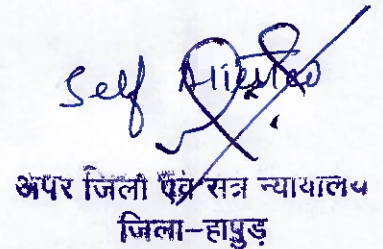 Self Attested
अपर जिला एवं सत्र न्यायालय
जिला-हापुड़